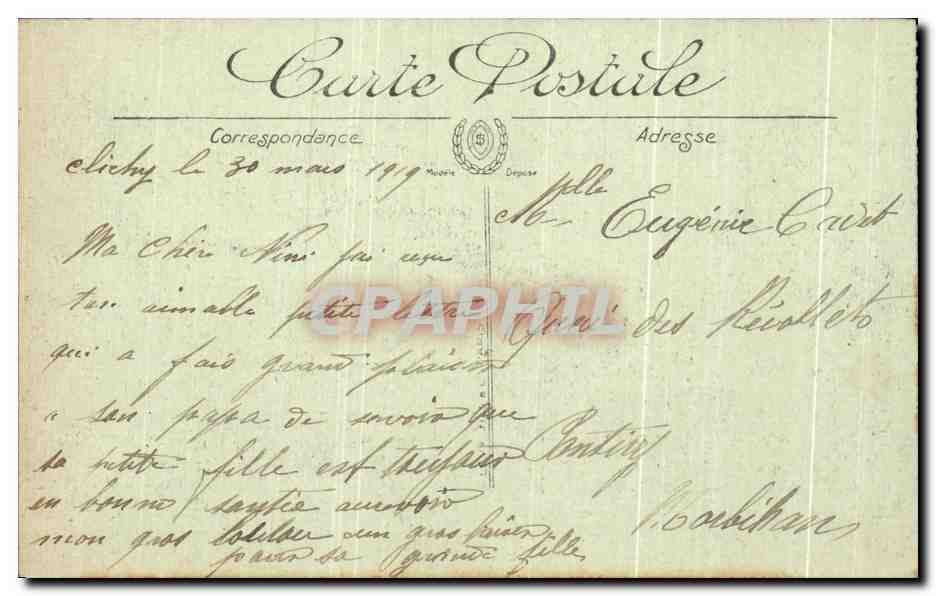 Carte Postale
Correspondance
Adresse
Clichy le 30 mars 1919
Modèle Déposé
Mlle Eugénie Cadet
Ma Chère Nini j'ai reçu
ton aimable petite lettre
Quai des Récollets
CPAPHIL
qui a fais grand plaisir
a son papa de savoir que
sa petite fille est toujour
Pontivy
en bonne santée aurevoir
Morbihan
mon gros un gros baiser
pour sa grande fille